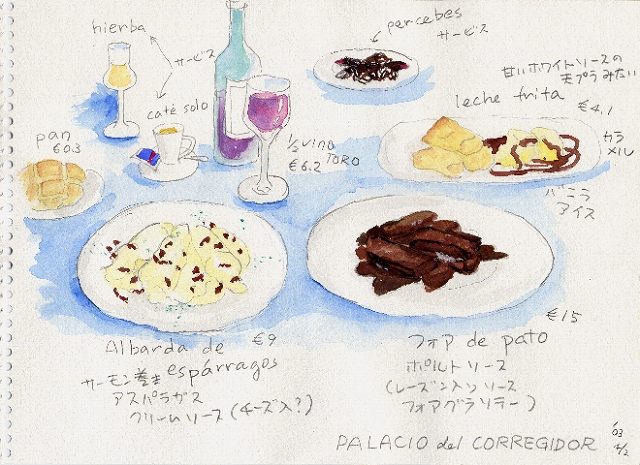 hierba
サービス
percebes
サービス
甘いホワイトソースの
天プラみたい
leche frita
€4,1
café solo
pan
€0.3
½ vino
TORO
€6.2
カラ
メル
バニラ
アイス
€9
Albarda de
espárragos
サーモン巻き
アスパラガス
クリームソース(チーズ入?)
€15
フォア de pato
ポルトソース
(レーズン入りソース
フォアグラソテー)
PALACIO del CORREGIDOR
'03